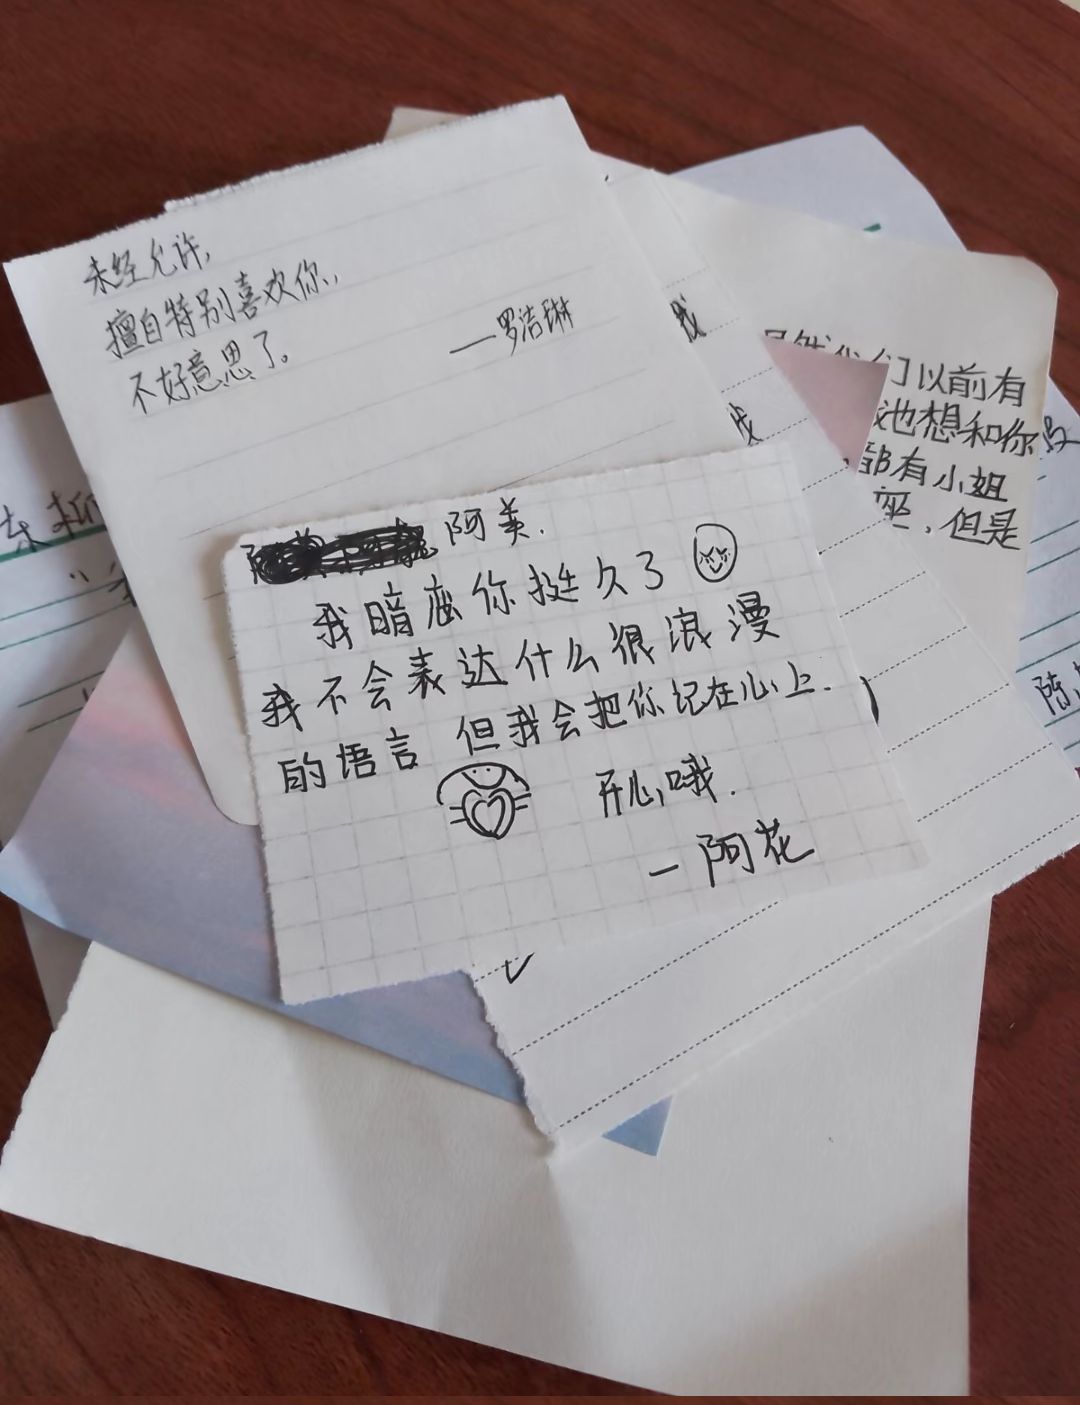 未经允许,
擅自特别喜欢你,
不好意思了。
——罗洁琳
阿美.
我暗恋你挺久了
我不会表达什么很浪漫
的语言 但我会把你记在心上.
开心哦.
—阿花
我
们以前有
也想和你
部有小姐
座,但是
陈